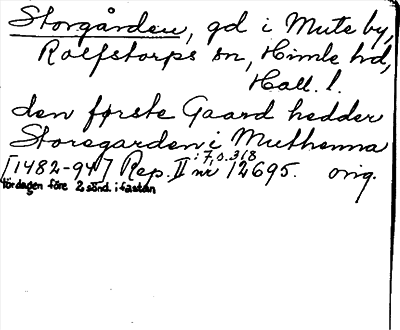 Storgården, gd i Mute by,
Rolfstorps sn, Himle hd,
Hall. l.
den første Gaard hedder
Storegarden i Muthenna
[1482-94] Rep. II :7, s. 318 nr 12695. orig.
lördagen före 2 sönd. i fastan